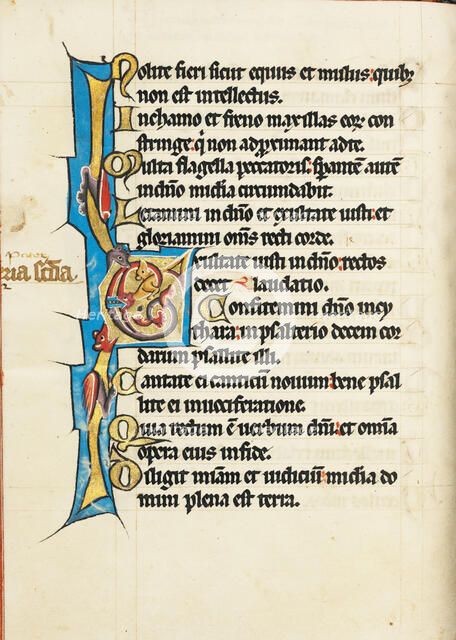 Nolite fieri sicut equus et mulus: quibꝫ
non est intellectus.
In chamo et freno maxillas eoꝝ con
stringe: q̄ non adꝓximant ad te.
Multa flagella peccatoris: sꝑantē autē
in dn̄o mīcdia circumdabit.
Letamini in dn̄o et exultate iusti: et
gloriamini om̄s recti corde.
ria scd̄a
Exultate iusti in dn̄o: rectos
decet laudatio.
Confitemini dn̄o in cy
thara: in psalterio decem cor
darum psallite illi.
Cantate ei canticū novum: bene psal
lite ei in vociferatione.
Quia rectum ē verbum dn̄i: et omnia
opera eius in fide.
Diligit mīam et iudiciū: mīcdia do
mini plena est terra.